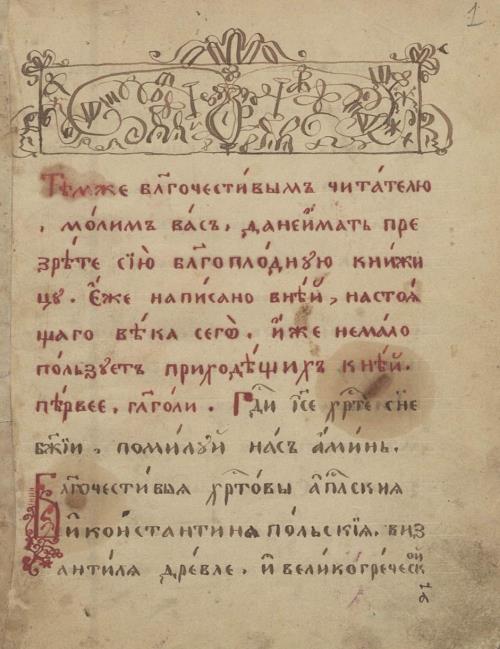 1
Тѣмже бл҃гочести́вымъ читáтелю
, мо́лимъ вáсъ, данеи́мать пре
зрѣ́те сїю̀ бл҃гопло́дную кни́жи
цу. Е҆́же напи́сано внѣ́й, настоѧ́
щаго вѣ́ка сегѡ̀. и҆́же немáло
по́льзуетъ приходѧ́щихъ кнѣ́й.
пе́рвее, гл҃го́ли. Гд҃и І҆с҃е хр҃те сн҃е
бж҃їи, поми́луй нáсъ а҆ми́нь.
Бл҃гочести́выѧ хр҃то́вы а҆пⷭ҇лскиѧ
и҆ко́нстантинапо́льскїѧ. виз
анти́лѧ дре́вле, и҆вели́когре́ческой
ѧ